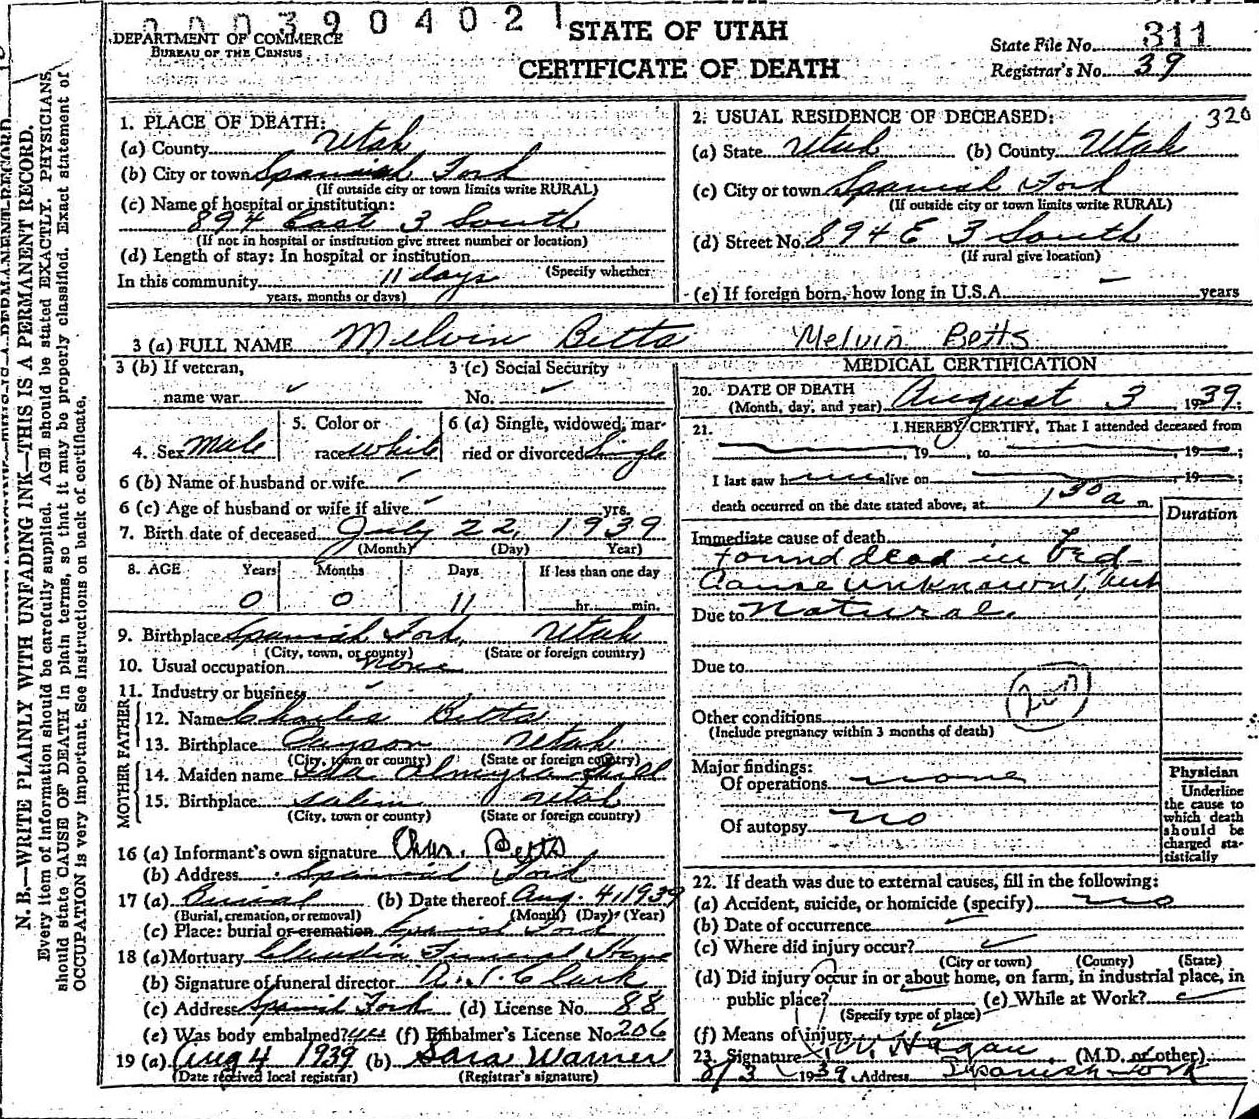 000390402
DEPARTMENT OF COMMERCE
BUREAU OF THE CENSUS
STATE OF UTAH
CERTIFICATE OF DEATH
State File No. 311
Registrar's No. 39
N. B.—WRITE PLAINLY WITH UNFADING INK—THIS IS A PERMANENT RECORD.
Every item of information should be carefully supplied. AGE should be stated EXACTLY. PHYSICIANS
should state CAUSE OF DEATH in plain terms, so that it may be properly classified. Exact statement of
OCCUPATION is very important. See instructions on back of certificate.
1. PLACE OF DEATH:
(a) County Utah
(b) City or town Spanish Fork
(If outside city or town limits write RURAL)
(c) Name of hospital or institution:
894 East 3 South
(If not in hospital or institution give street number or location)
(d) Length of stay: In hospital or institution
(Specify whether
In this community 11 days
years, months or days)
2. USUAL RESIDENCE OF DECEASED: 320
(a) State Utah (b) County Utah
(c) City or town Spanish Fork
(If outside city or town limits write RURAL)
(d) Street No. 894 E 3 South
(If rural give location)
(e) If foreign born, how long in U.S.A. — years
3 (a) FULL NAME Melvin Betts Melvin Betts
3 (b) If veteran,
name war
3 (c) Social Security
No.
4. Sex Male
5. Color or
race White
6 (a) Single, widowed, mar-
ried or divorced Single
6 (b) Name of husband or wife
6 (c) Age of husband or wife if alive yrs.
7. Birth date of deceased July 22, 1939
(Month) (Day) Year)
8. AGE Years Months Days If less than one day
0 0 11 hr. min.
9. Birthplace Spanish Fork, Utah
(City, town, or county) (State or foreign country)
10. Usual occupation None
11. Industry or business
FATHER
12. Name Charles Betts
13. Birthplace Payson Utah
(City, town or county) (State or foreign country)
MOTHER
14. Maiden name Ida Almyra
15. Birthplace Salem Utah
(City, town or county) (State or foreign country)
16 (a) Informant's own signature Chas. Betts
(b) Address Spanish Fork
17 (a) Burial (b) Date thereof Aug. 4, 1939
(Burial, cremation, or removal) (Month) (Day) (Year)
(c) Place: burial or cremation Spanish Fork
18 (a) Mortuary Claudin Funeral Home
(b) Signature of funeral director Clark
(c) Address Spanish Fork (d) License No. 88
(e) Was body embalmed? yes (f) Embalmer's License No. 206
19 (a) Aug 4 1939 (b) Sara Warner
(Date received local registrar) (Registrar's signature)
MEDICAL CERTIFICATION
20. DATE OF DEATH
(Month, day, and year) August 3, 1939;
21. I HEREBY CERTIFY, That I attended deceased from
, 19 , to , 19 ;
I last saw h alive on , 19 ;
death occurred on the date stated above, at 1 30 a m.
Duration
Immediate cause of death
Found dead in bed
Cause unknown, but
Due to Natural.
Due to
200
Other conditions
(Include pregnancy within 3 months of death)
Major findings:
Of operations none
Of autopsy no
Physician
Underline
the cause to
which death
should be
charged sta-
tistically
22. If death was due to external causes, fill in the following:
(a) Accident, suicide, or homicide (specify) no
(b) Date of occurrence
(c) Where did injury occur?
(City or town) (County) (State)
(d) Did injury occur in or about home, on farm, in industrial place, in
public place? (e) While at Work?
(Specify type of place)
(f) Means of injury
23. Signature Hagan, (M.D. or other)
8/3 1939 Address Spanish Fork